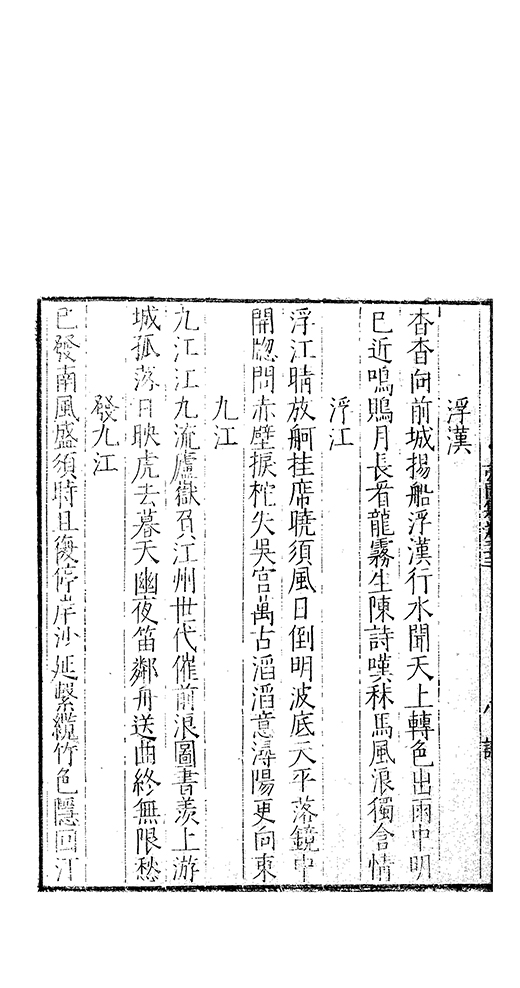 浮漢
杳杳向前城揚船浮漢行水聞天上轉色出雨中明
已近鳴鵙月長看龍霧生陳詩嘆秣馬風浪獨含情
浮江
浮江晴放舸挂席曉須風日倒明波底天平落鏡中
開牕問赤壁捩柁失吳宮萬古滔滔意潯陽更向東
九江
九江江九流廬嶽負江州世代催前浪圖書羨上游
城孤落日映虎去暮天幽夜笛鄰舟送曲終無限愁
發九江
已發南風盛須時且復停岸沙延繫纜竹色隱回汀